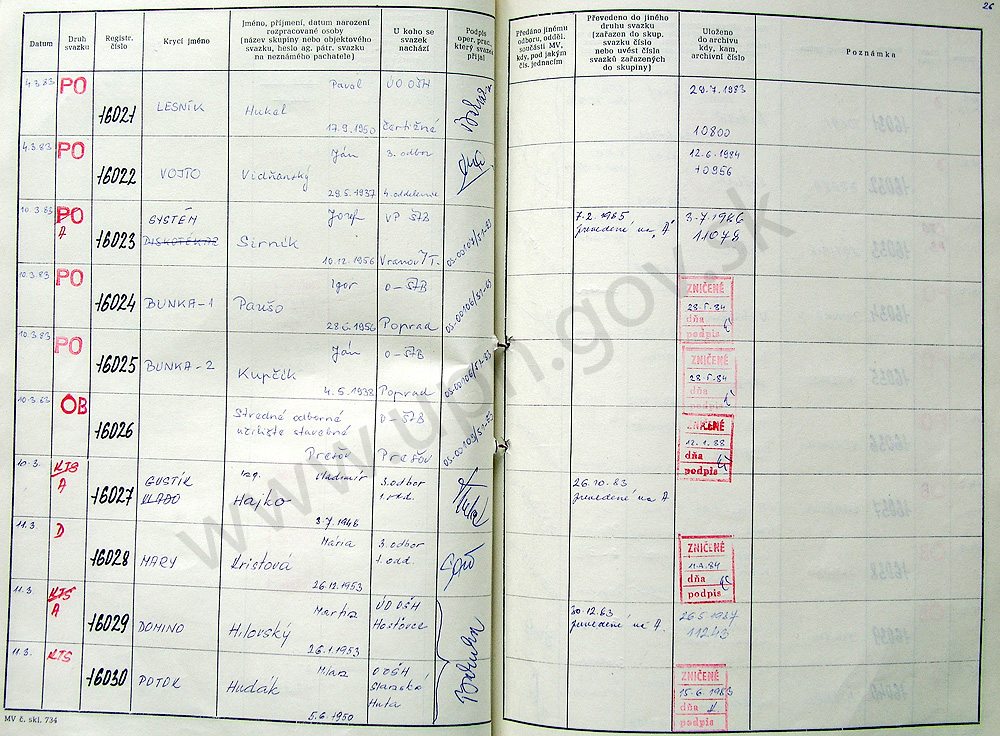 26
Datum
Druh svazku
Registr. číslo
Krycí jméno
Jméno, příjmení, datum narození rozpracované osoby (název skupiny nebo objektového svazku, heslo ag. pátr. svazku na neznámého pachatele)
U koho se svazek nachází
Podpis oper. prac., který svazek přijal
Předáno jinému odboru, odděl. součásti MV, kdy, pod jakým čís. jednacím
Převedeno do jiného druhu svazku (zařazen do skup. svazku číslo nebo uvést čísla svazků zařazených do skupiny)
Uloženo do archivu kdy, kam, archivní číslo
Poznámka
4.3.83 PO 16021 LESNÍK Hukel Pavol 17.9.1950 ÚO OŠH Čertižné 29.7.1983 10800
4.3.83 PO 16022 VOJTO Vidňanský Ján 29.5.1937 3. odbor 4. oddelenie 12.6.1984 10956
10.3.83 PO A 16023 SYSTÉM Sirník Jozef 10.12.1956 VP ŠTB Vranov/T. 7.2.1985 prevedené na "A" 3.7.1986 11078
10.3.83 PO 16024 BUNKA-1 Paušo Igor 28.6.1956 O-ŠTB Poprad ZNIČENÉ 28.5.84 dňa podpis
10.3.83 PO 16025 BUNKA-2 Kupčík Ján 4.5.1938 O-ŠTB Poprad ZNIČENÉ 28.5.84 dňa podpis
10.3.83 OB 16026 Stredné odborné učilište stavebné Prešov O-ŠTB Prešov ZNIČENÉ 12.1.88 dňa podpis
10.3. KTS A 16027 GUSTÍK VLADO Ing. Vladimír Hajko 3.7.1948 3. odbor 1. odd. 26.10.83 prevedené na A
11.3. D 16028 MARY Kristová Mária 26.12.1953 3. odbor 1. odd. ZNIČENÉ 11.4.84 dňa podpis
11.3 KTS A 16029 DOMINO Hilovský Martin 26.1.1953 ÚO OŠH Hostovce 30.12.83 prevedené na A. 26.5.1987 11243
11.3. KTS 16030 POTOK Hudák Milan 5.6.1950 OOŠH Huta ZNIČENÉ 15.6.1983 dňa podpis
MV č. skl. 734
www.upn.gov.sk